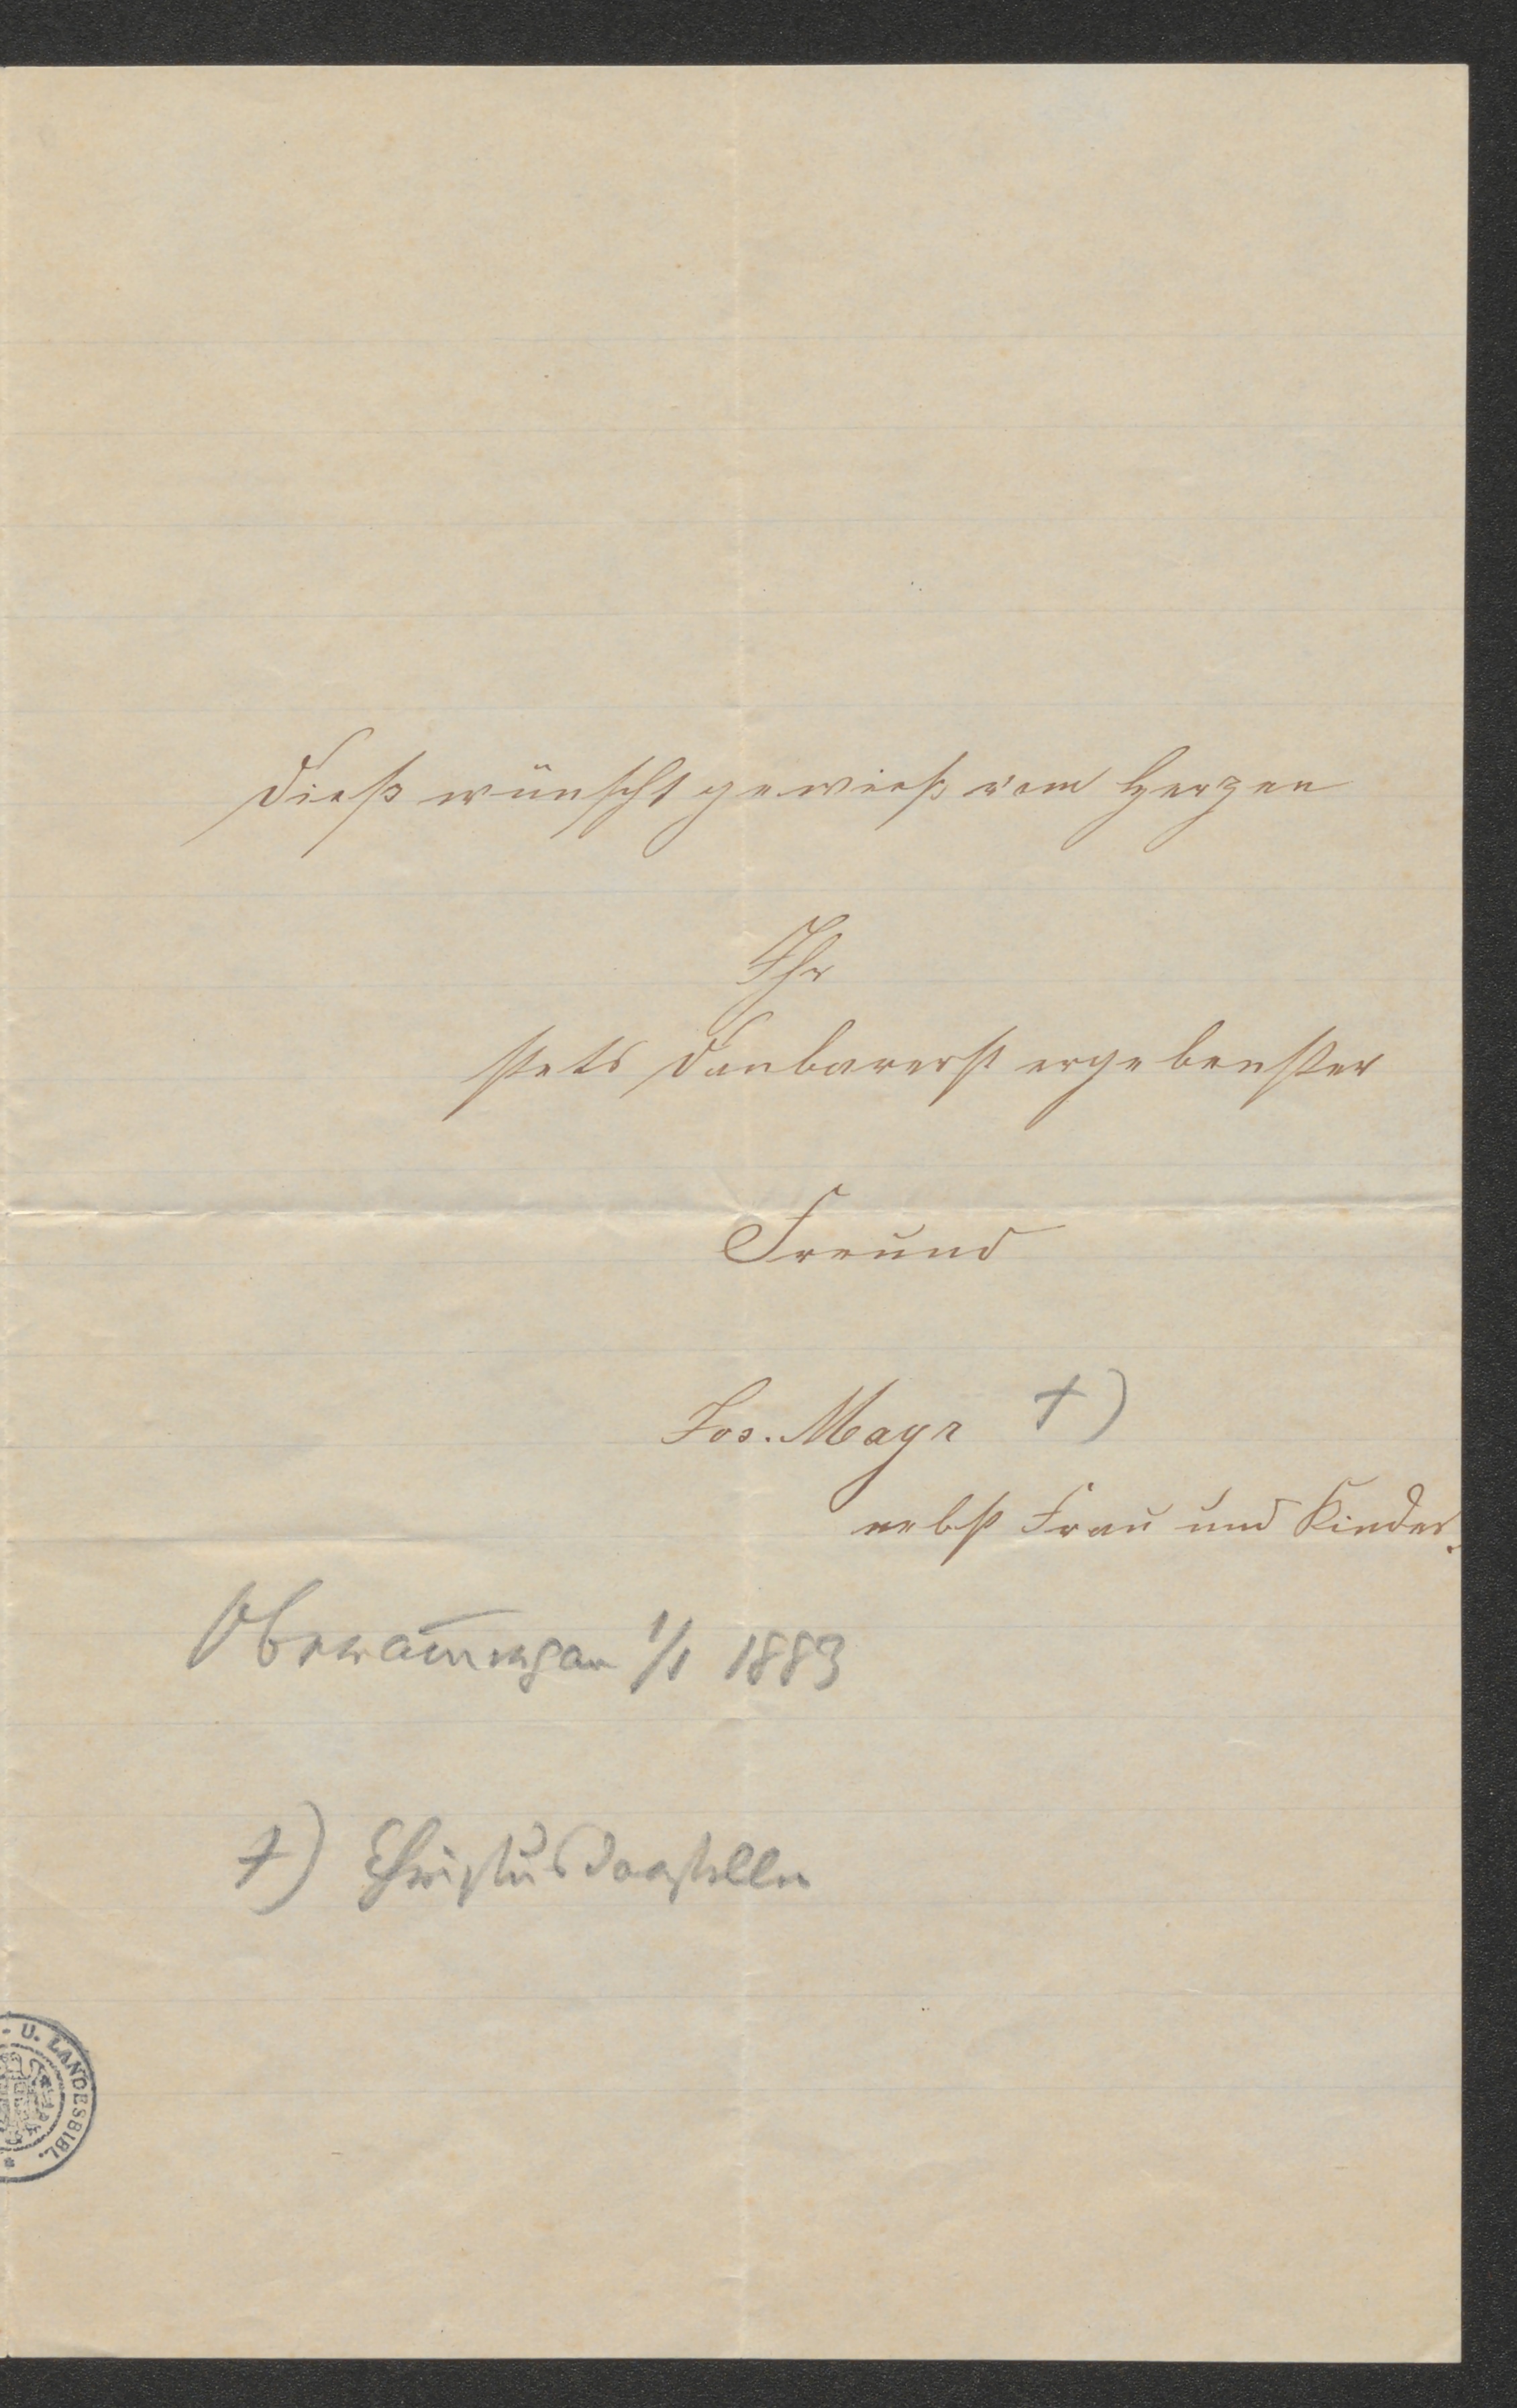 Dieß wünscht gewieß vom Herzen
Ihr
stets danbarerst ergebenster
Freund
Jos. Mayr †)
nebst Frau und Kinder.
Oberam̄ergau 1/1 1883
†) Christusdarsteller
- U. LANDESBIBL. *